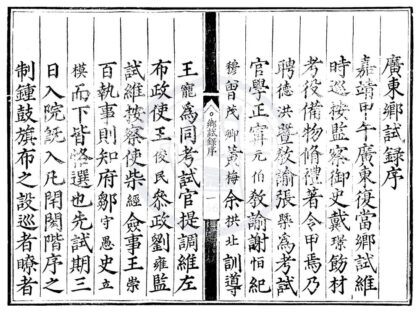 廣東鄉試録序
嘉靖甲午廣東復當鄉試維
時巡按監察御史戴璟飭材
考役備物脩禮著令甲焉乃
聘德洪暨教諭張槩為考試
官學正甯元伯教諭謝怕紀
穆曽茂卿黄梅余拱北訓導
鄉試録序
一
王寵為同考試官提調維左
布政使王俊民參政劉雍監
試維按察使柴經僉事王崇
百執事則知府鄒守愚史立
模而下皆慎選也先試期三
日入院既入凡閉闔階序之
制鍾鼓旗布之設巡者瞭者